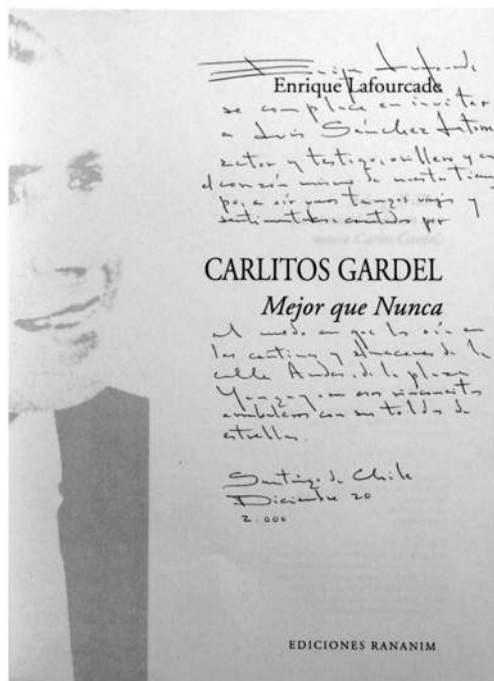 Enrique Lafourcade
Enrique Lafourcade
se complace en invitar
a Luis Sánchez Latorre
actor y testigo, orillero y en
el corazón mismo de nuestro tiem
po, a oír unos tangos viejos y
sentimentales cantados por
CARLITOS GARDEL
Mejor que Nunca
al modo en que los oía en
las cantinas y almacenes de la
calle Andes, de la plaza
Yungay, en esos
con sus toldos de
estrellas.
Santiago de Chile
Diciembre 20
2.000
EDICIONES RANANIM